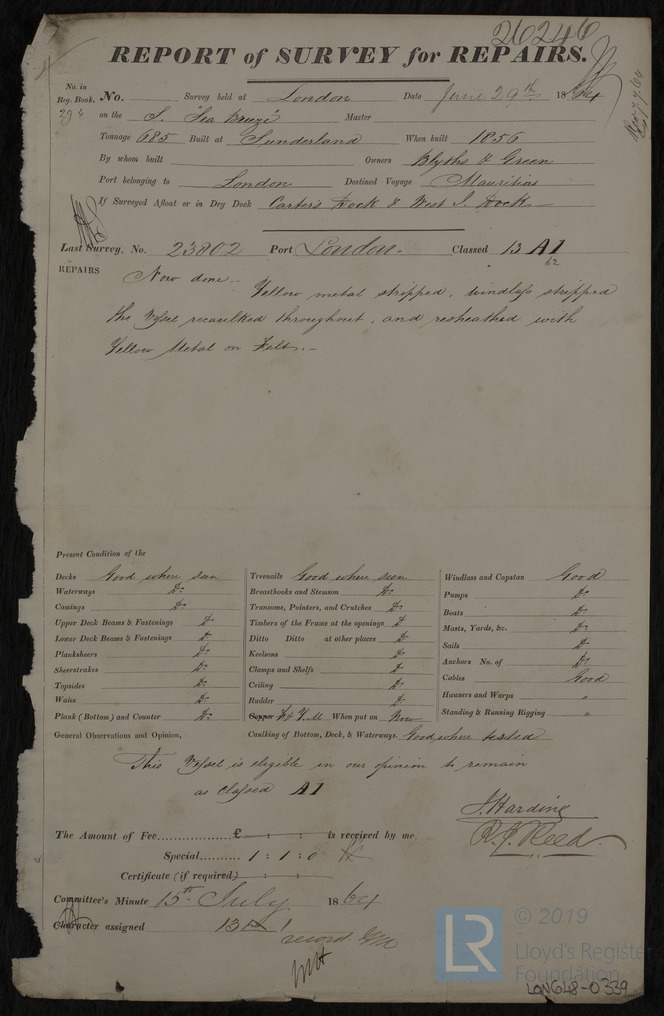 26246
REPORT of SURVEY for REPAIRS.
No. in Reg. Book. No. Survey held at London Date June 29th 1864
on the S. "Sea Breeze" Master
Tonnage 685 Built at Sunderland When built 1856
By whom built Owners Blyths & Green
Port belonging to London Destined Voyage Mauritius
If Surveyed Afloat or in Dry Dock Carter's Dock & West I. Dock.
Last Survey, No. 23802 Port London. Classed 13 A1
62
REPAIRS Now done.. Yellow metal stripped, windlass stripped
the Vessel recaulked throughout, and resheathed with
Yellow Metal on Felt.
Present Condition of the
Decks Good where seen
Waterways Do.
Comings Do.
Upper Deck Beams & Fastenings Do
Lower Deck Beams & Fastenings Do
Planksheers Do.
Sheerstrakes Do.
Topsides Do.
Wales Do.
Plank (Bottom) and Counter Do.
Treenails Good where seen
Breasthooks and Stemson Do.
Transoms, Pointers, and Crutches Do.
Timbers of the Frame at the openings Do
Ditto Ditto at other places Do
Keelsons Do.
Clamps and Shelfs Do.
Ceiling Do.
Rudder Do
Copper Ft Y.M When put on Now
Windlass and Capstan Good
Pumps Do.
Boats Do.
Masts, Yards, &c. Do.
Sails Do
Anchors No. of Do.
Cables Good
Hawsers and Warps "
Standing & Running Rigging "
General Observations and Opinion, Caulking of Bottom, Deck, & Waterways. Good where tested
This Vessel is elegible in our opinion to remain
as Classed A1
J. Harding
R. J. Reed
The Amount of Fee.................. £ : : is received by me.
Special.......... 1 : 1 : 0
Certificate (if required) : :
Committee's Minute 15th July 1864
Character assigned 13 A 1
record YM
© 2019
LR
Lloyd's Register
Foundation
LON648-0339